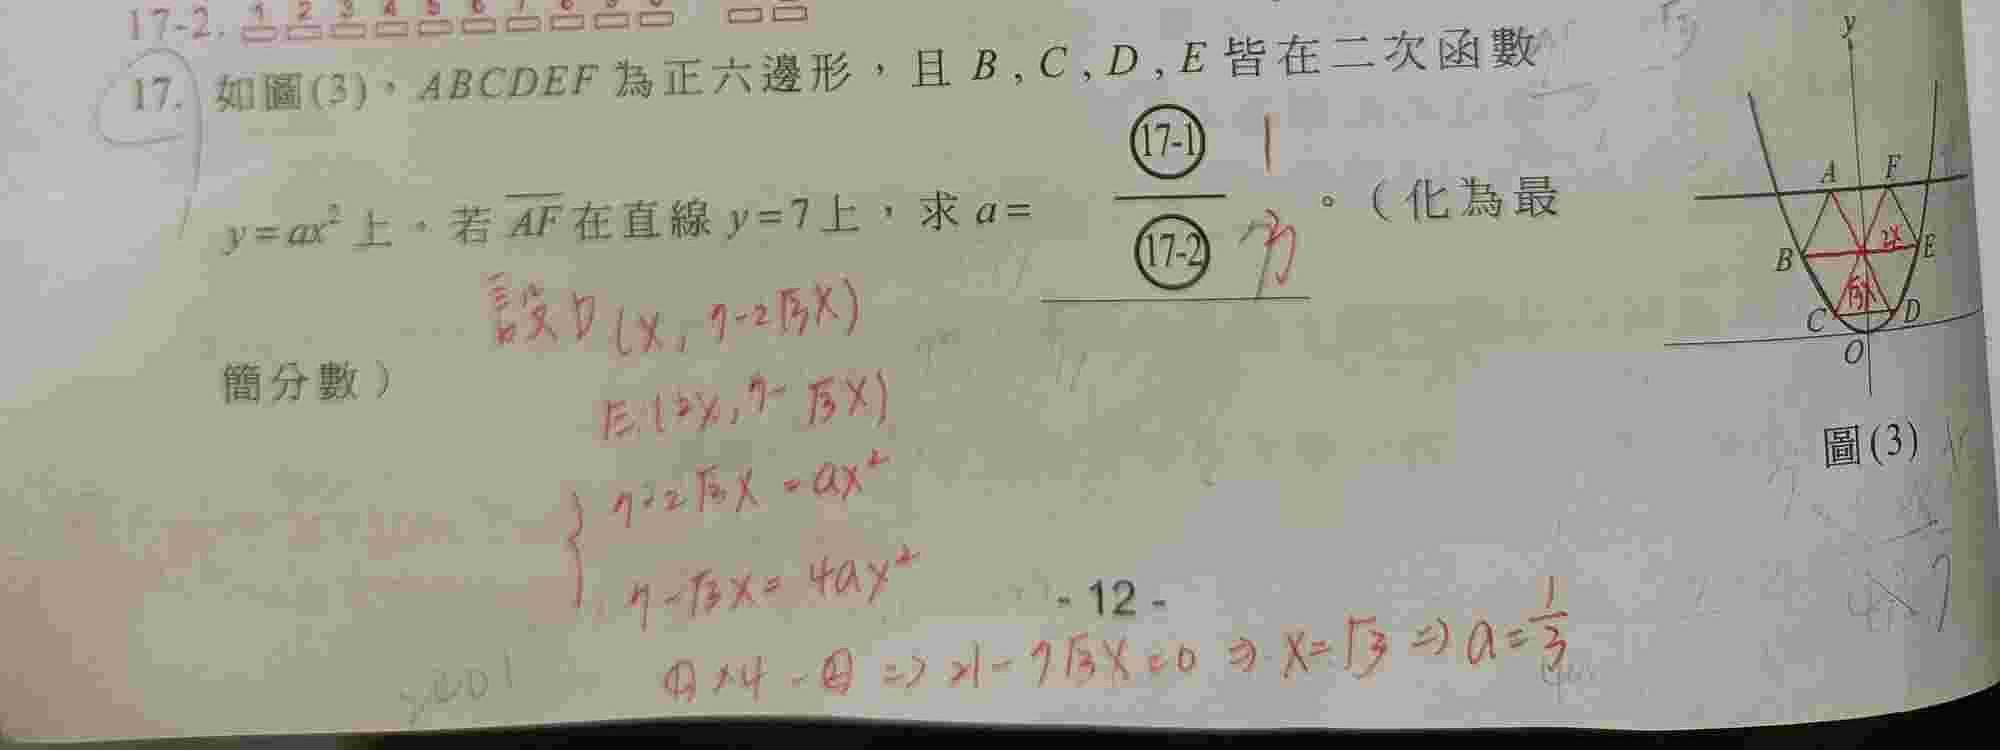 17-2. 1 2 3 4 5 6 7 8 9 0 - ±
17. 如圖(3),ABCDEF 為正六邊形,且 B , C , D , E 皆在二次函數
y=ax² 上。若 AF 在直線 y=7上,求 a= 17-1 / 17-2 。(化為最
1
3
簡分數)
設D (x, 7-2√3x)
E (2x, 7-√3x)
7-2√3x = ax²
7-√3x = 4ax²
①×4-② => 21-7√3x=0 => x=√3 => a=1/3
- 12 -
y
A F
B 2x E
√3x
C D
O
圖(3)